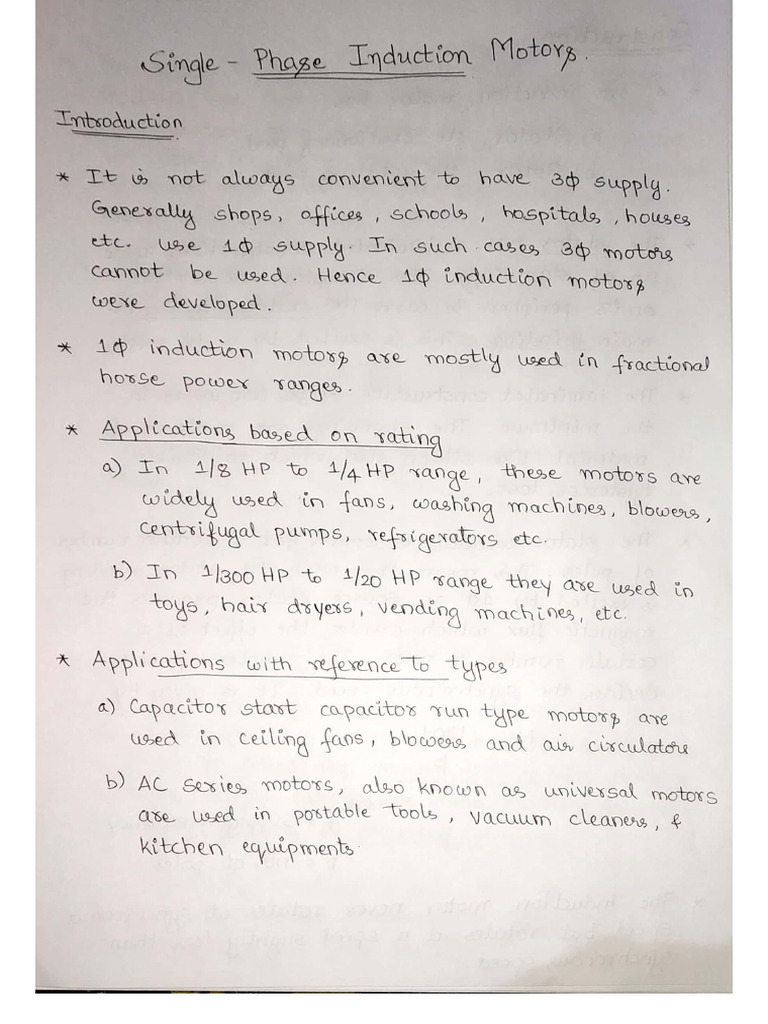 Single - Phase Induction Motors.
Introduction
* It is not always convenient to have 3Φ supply.
Generally shops, offices, schools, hospitals, houses
etc. use 1Φ supply. In such cases 3Φ motors
cannot be used. Hence 1Φ induction motors
were developed.
* 1Φ induction motors are mostly used in fractional
horse power ranges.
* Applications based on rating
a) In 1/8 HP to 1/4 HP range, these motors are
widely used in fans, washing machines, blowers,
centrifugal pumps, refrigerators etc.
b) In 1/300 HP to 1/20 HP range they are used in
toys, hair dryers, vending machines, etc.
* Applications with reference to types
a) Capacitor start capacitor run type motors are
used in ceiling fans, blowers and air circulators
b) AC series motors, also known as universal motors
are used in portable tools, vacuum cleaners, &
kitchen equipments.